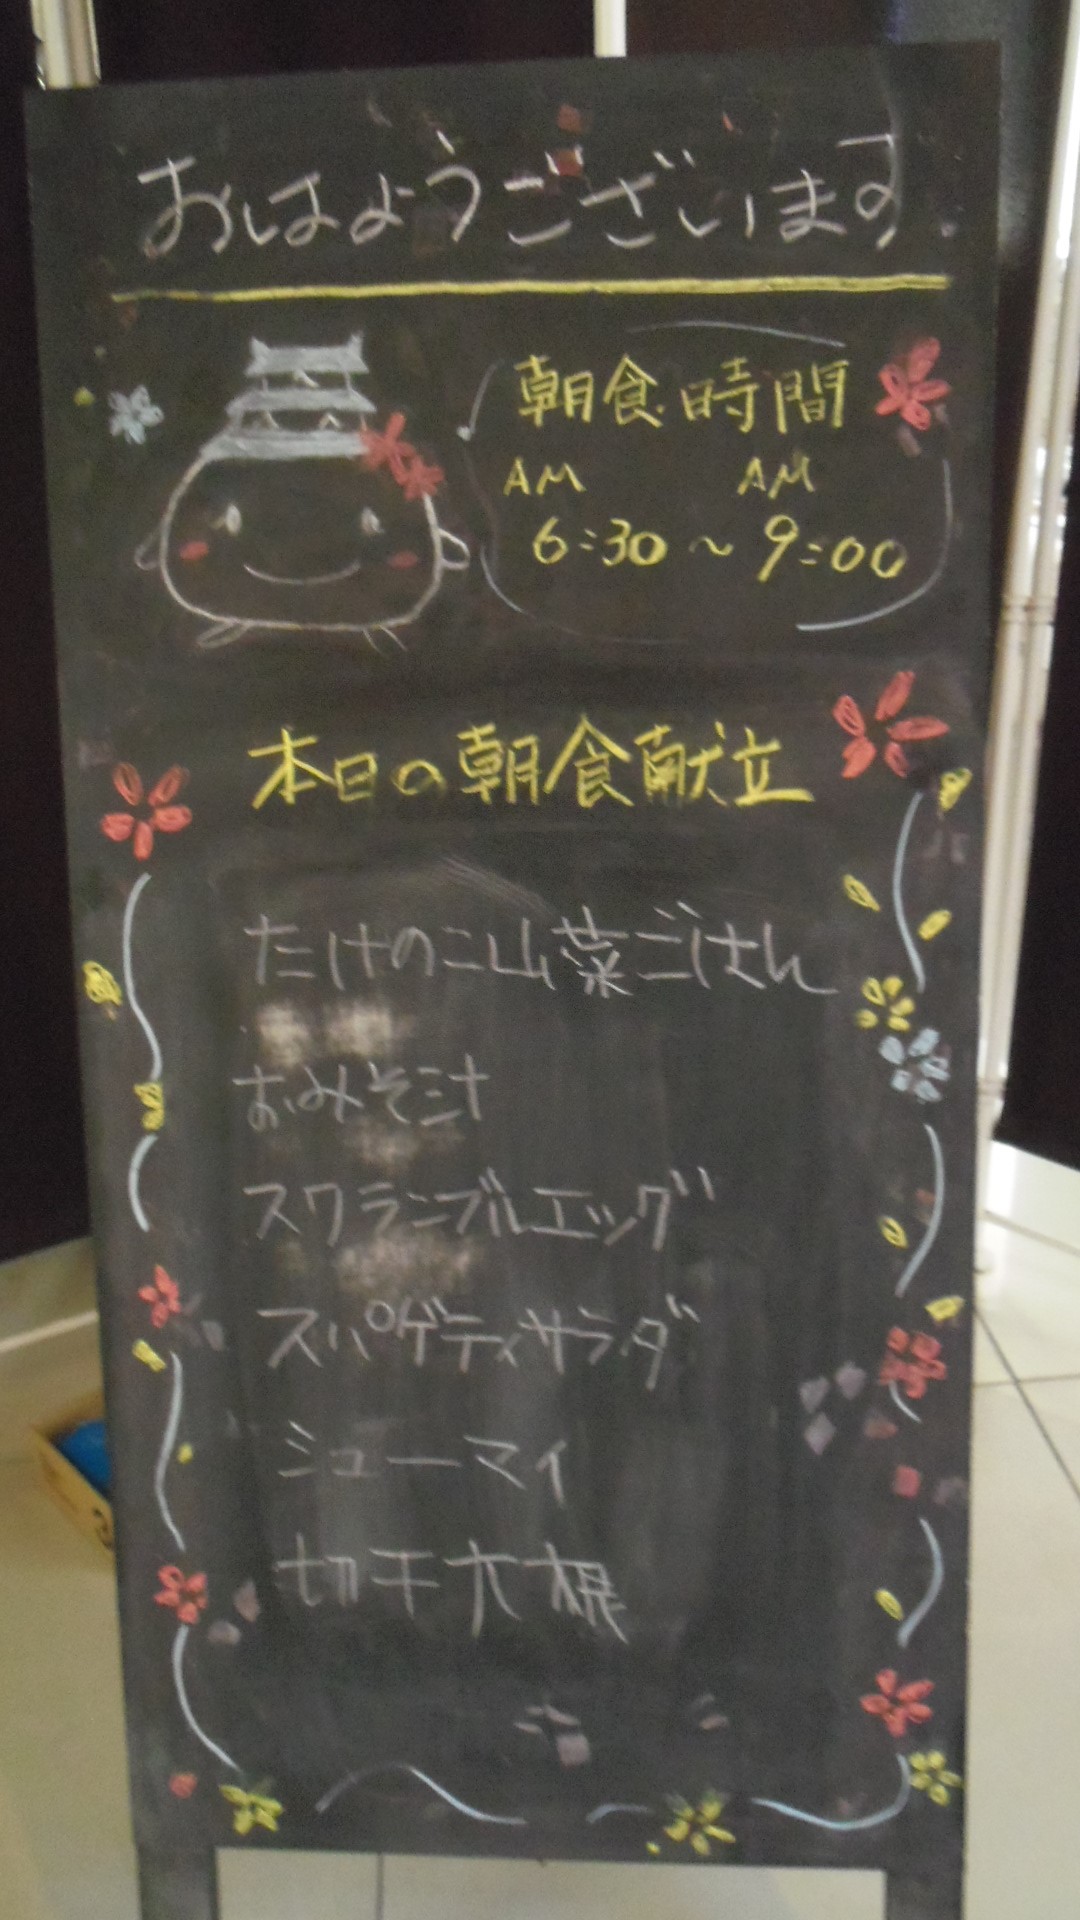 おはようございます.
朝食時間
AM AM
6:30 ~ 9:00
本日の朝食献立
たけのこ山菜ごはん
おみそ汁
スクランブルエッグ
スパゲティサラダ
シューマイ
切干大根